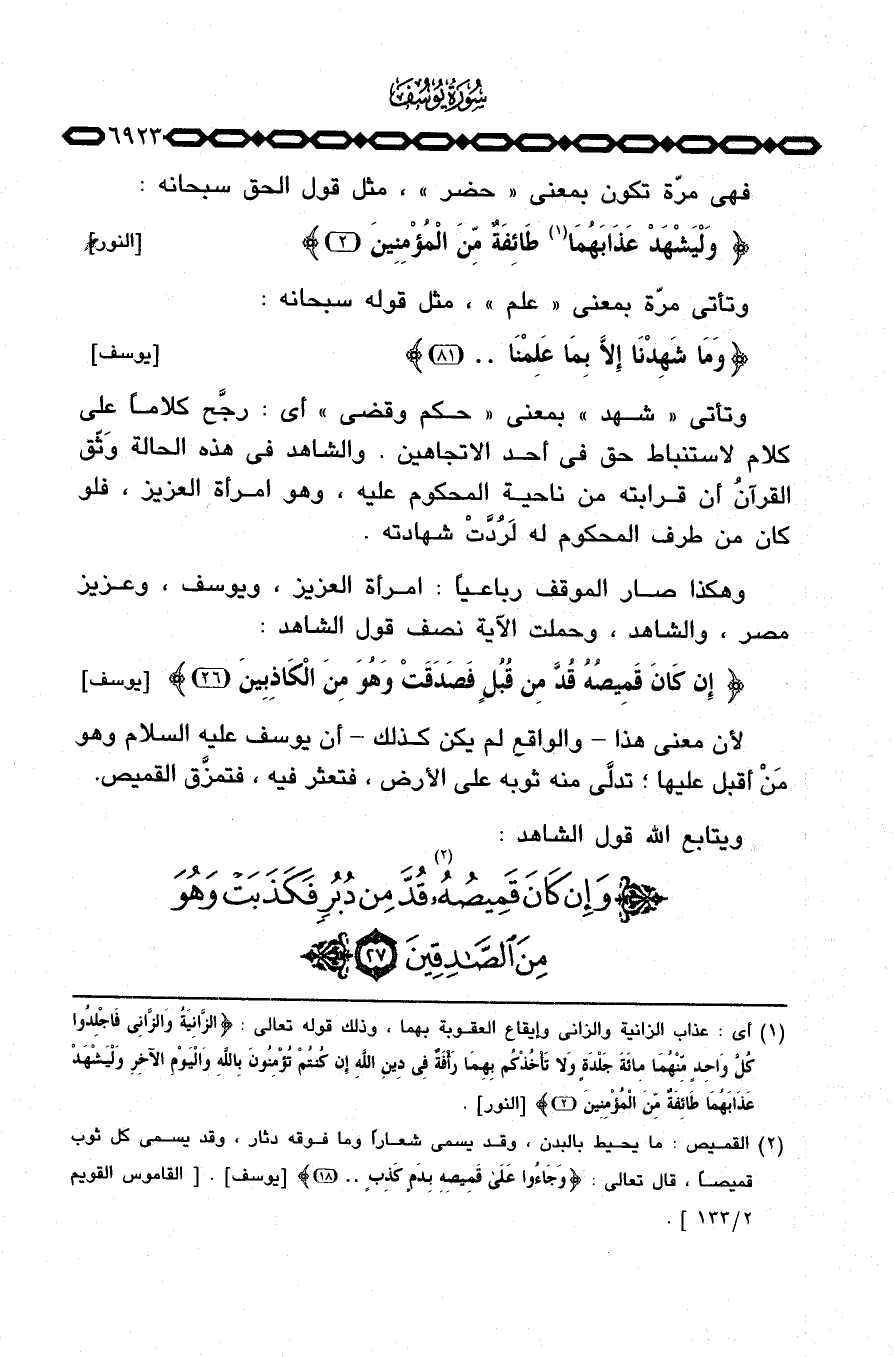 سُورَةُ يُوسُفَ
٦٩٢٣
فهى مرّة تكون بمعنى « حضر » ، مثل قول الحق سبحانه :
﴿ وَلْيَشْهَدْ عَذَابَهُمَا(١) طَائِفَةٌ مِّنَ الْمُؤْمِنِينَ (٢) ﴾ [النور]
وتأتى مرّة بمعنى « علم » ، مثل قوله سبحانه :
﴿ وَمَا شَهِدْنَا إِلاَّ بِمَا عَلِمْنَا .. (٨١) ﴾ [يوسف]
وتأتى « شهد » بمعنى « حكم وقضى » أى : رجَّح كلاماً على
كلام لاستنباط حق فى أحد الاتجاهين . والشاهد فى هذه الحالة وَثّق
القرآنُ أن قرابته من ناحية المحكوم عليه ، وهو امرأة العزيز ، فلو
كان من طرف المحكوم له لَرُدَّتْ شهادته .
وهكذا صار الموقف رباعياً : امرأة العزيز ، ويوسف ، وعزيز
مصر ، والشاهد ، وحملت الآية نصف قول الشاهد :
﴿ إِن كَانَ قَمِيصُهُ قُدَّ مِن قُبُلٍ فَصَدَقَتْ وَهُوَ مِنَ الْكَاذِبِينَ (٢٦) ﴾ [يوسف]
لأن معنى هذا – والواقع لم يكن كذلك – أن يوسف عليه السلام وهو
مَنْ أقبل عليها ؛ تدلَّى منه ثوبه على الأرض ، فتعثر فيه ، فتمزَّق القميص.
ويتابع الله قول الشاهد :
﴿ وَإِن كَانَ قَمِيصُهُۥ(٢) قُدَّ مِن دُبُرٍ فَكَذَبَتْ وَهُوَ
مِنَ ٱلصَّـٰدِقِينَ (٢٧) ﴾
(١) أى : عذاب الزانية والزانى وإيقاع العقوبة بهما ، وذلك قوله تعالى : ﴿ الزَّانِيَةُ وَالزَّانِى فَاجْلِدُوا
كُلَّ وَاحِدٍ مِّنْهُمَا مِائَةَ جَلْدَةٍ وَلا تَأْخُذْكُم بِهِمَا رَأْفَةٌ فِى دِينِ اللَّهِ إِن كُنتُمْ تُؤْمِنُونَ بِاللَّهِ وَالْيَوْمِ الآخِرِ وَلْيَشْهَدْ
عَذَابَهُمَا طَائِفَةٌ مِّنَ الْمُؤْمِنِينَ (٢) ﴾ [النور] .
(٢) القميص : ما يحيط بالبدن ، وقد يسمى شعاراً وما فوقه دثار ، وقد يسمى كل ثوب
قميصاً ، قال تعالى : ﴿ وَجَاءُوا عَلَىٰ قَمِيصِهِ بِدَمٍ كَذِبٍ .. (١٨) ﴾ [يوسف] . [ القاموس القويم
١٣٣/٢ ] .